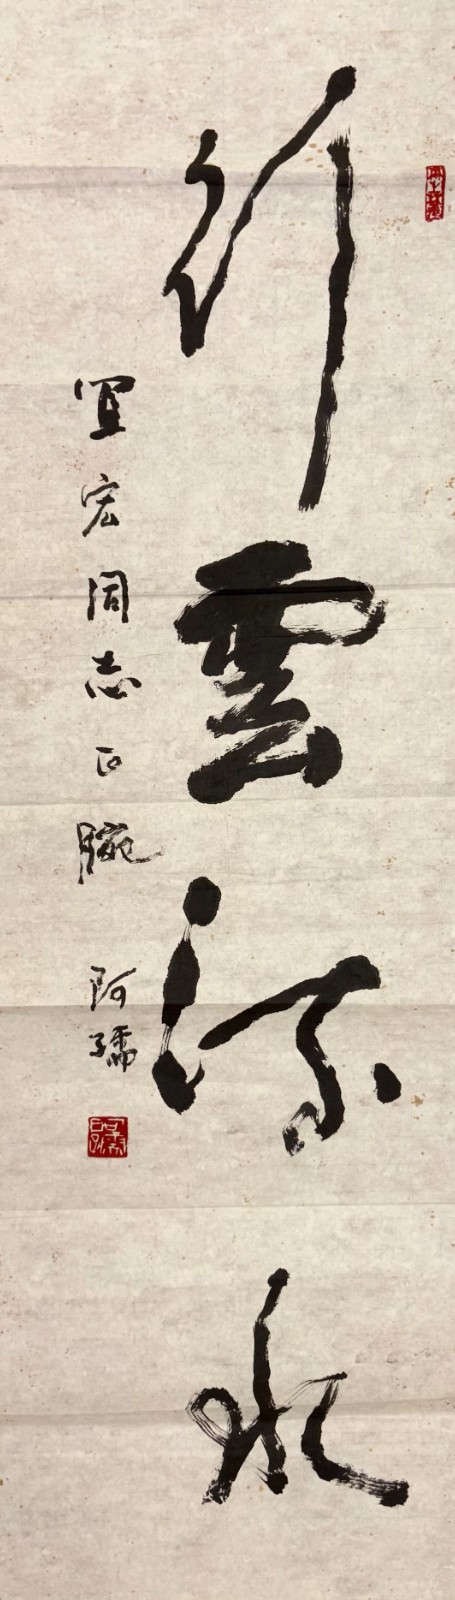 行雲流水
宜宏同志正腕
阿孺